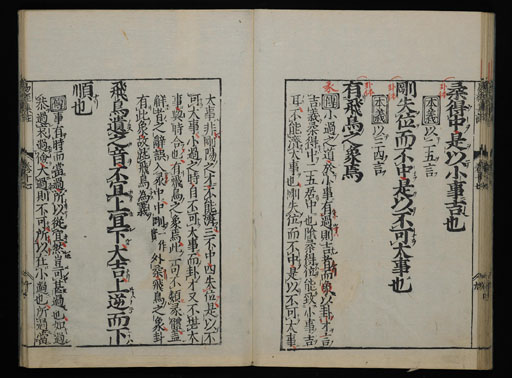 柔得中是以小事吉也
本義以二五言
剛失位而不中是以不可大事也
本義以三四言
傳小過之道於小事有過則吉者而彖以卦才言
吉義柔得中二五居中也陰柔得位能致小事吉
耳不能濟大事也剛失位而不中是以不可大事
有飛鳥之象焉
大事非剛陽之才不能濟三不中四失位是以不
可大事小過之時自不可大事而卦才又不堪大
事與時合也有飛鳥之象焉此一句不類彖體蓋
解者之辭誤入彖中中剛外柔飛鳥之象卦
有此象故就飛鳥為義
飛鳥遺之音不宜上宜下大吉上逆而下
順也
傳事有時而當過所以從宜然豈可甚過也如過
恭過哀過儉大過則不可所以在小過也所過當